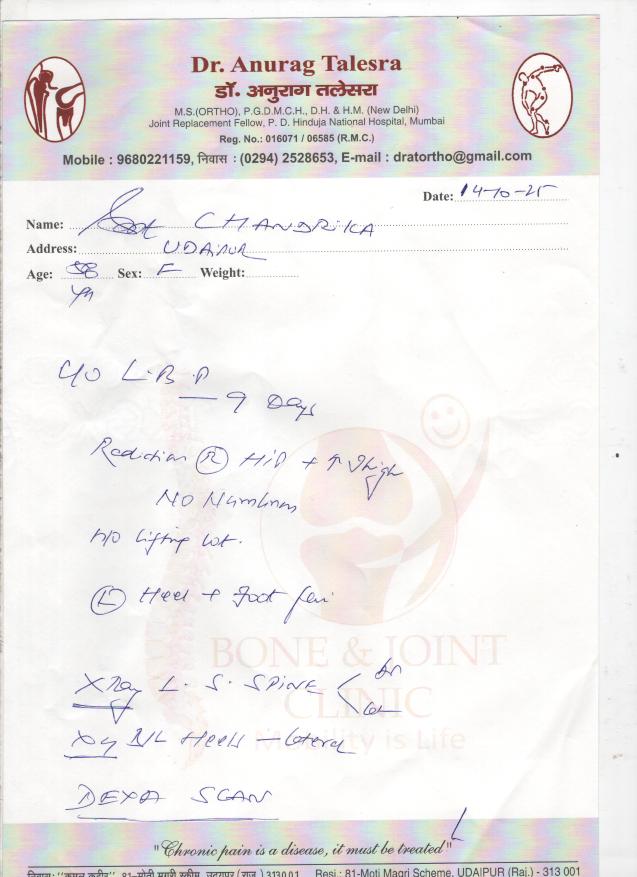 Dr. Anurag Talesra
डॉ. अनुराग तलेसरा
M.S.(ORTHO), P.G.D.M.C.H., D.H. & H.M. (New Delhi)
Joint Replacement Fellow, P. D. Hinduja National Hospital, Mumbai
Reg. No.: 016071 / 06585 (R.M.C.)
Mobile : 9680221159, निवास : (0294) 2528653, E-mail : dratortho@gmail.com
Date: 14-10-25
Name: CHANDRIKA
Address: UDAIPUR
Age: 58 Sex: F Weight:
yr
C/O L.B.P
— 9 Days
Radiation (R) Hip + Thigh
NO Numbness
H/O Lifting wt.
(L) Heel + Foot Pain
X Ray L. S. SPINE < AP
Lat
Xray B/L Heels - Lateral
DEXA SCAN
BONE & JOINT
CLINIC
Mobility is Life
"Chronic pain is a disease, it must be treated"
81-मोती मगरी स्कीम, उदयपुर (राज.) 313001 Resi.: 81-Moti Magri Scheme, UDAIPUR (Raj.) - 313 001